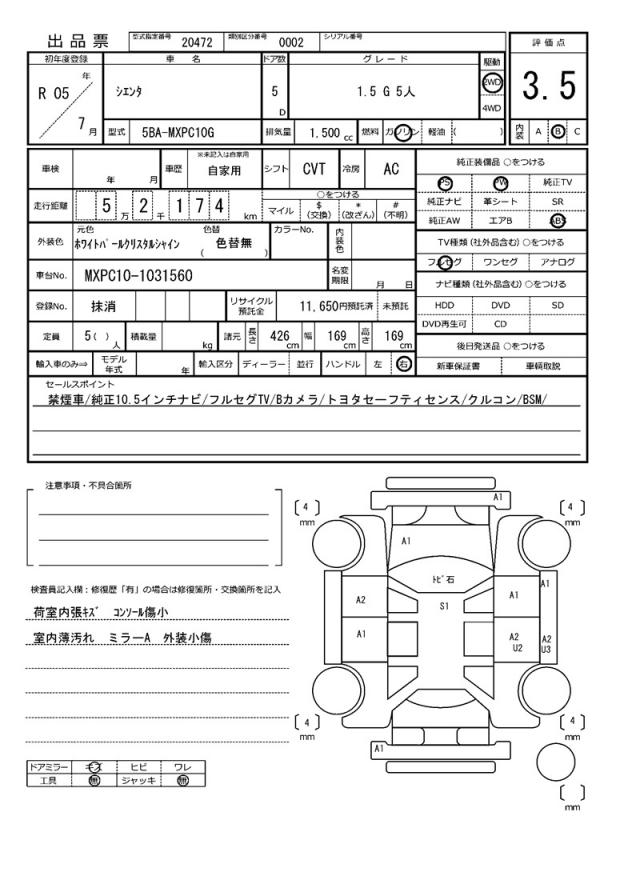 出品票
型式指定番号 20472 類別区分番号 0002 シリアル番号
評価点
3.5
内装 A B C
初年度登録 車名 ドア数 グレード 駆動
R 05 年 7 月
シエンタ 5 D 1.5 G 5人
2WD
4WD
型式 5BA-MXPC10G 排気量 1.500 cc 燃料 ガソリン 軽油 ( )
車検 年 月 車歴 ※未記入は自家用 自家用 シフト CVT 冷房 AC
走行距離 5 万 2 千 1 7 4 km
○をつける
マイル $(交換) *(改ざん) #(不明)
外装色 元色 ホワイトパールクリスタルシャイン 色替 ( 色替無 ) カラーNo. 内装色
車台No. MXPC10-1031560 名変期限 月 日
登録No. 抹消 リサイクル預託金 11,650円預託済 未預託
定員 5( )人 積載量 kg 諸元 長さ 426 cm 幅 169 cm 高さ 169 cm
輸入車のみ⇒ モデル年式 年 輸入区分 ディーラー 並行 ハンドル 左 右
純正装備品 ○をつける
PS PW 純正TV
純正ナビ 革シート SR
純正AW エアB ABS
TV種類 (社外品含む) ○をつける
フルセグ ワンセグ アナログ
ナビ種類 (社外品含む) ○をつける
HDD DVD SD
DVD再生可 CD
後日発送品 ○をつける
新車保証書 車輌取説
セールスポイント
禁煙車/純正10.5インチナビ/フルセグTV/Bカメラ/トヨタセーフティセンス/クルコン/BSM/
注意事項・不具合箇所
検査員記入欄：修復歴「有」の場合は修復箇所・交換箇所を記入
荷室内張キズ コンソール傷小
室内薄汚れ ミラーA 外装小傷
ドアミラー キズ ヒビ ワレ
工具 無 ジャッキ 無
A1
[ 4 ] mm
[ 4 ] mm
A1
トビ石
A1
S1
A2
A1
A1
A2
U2
A2
U3
[ 4 ] mm
[ 4 ] mm
A1
[ ] mm